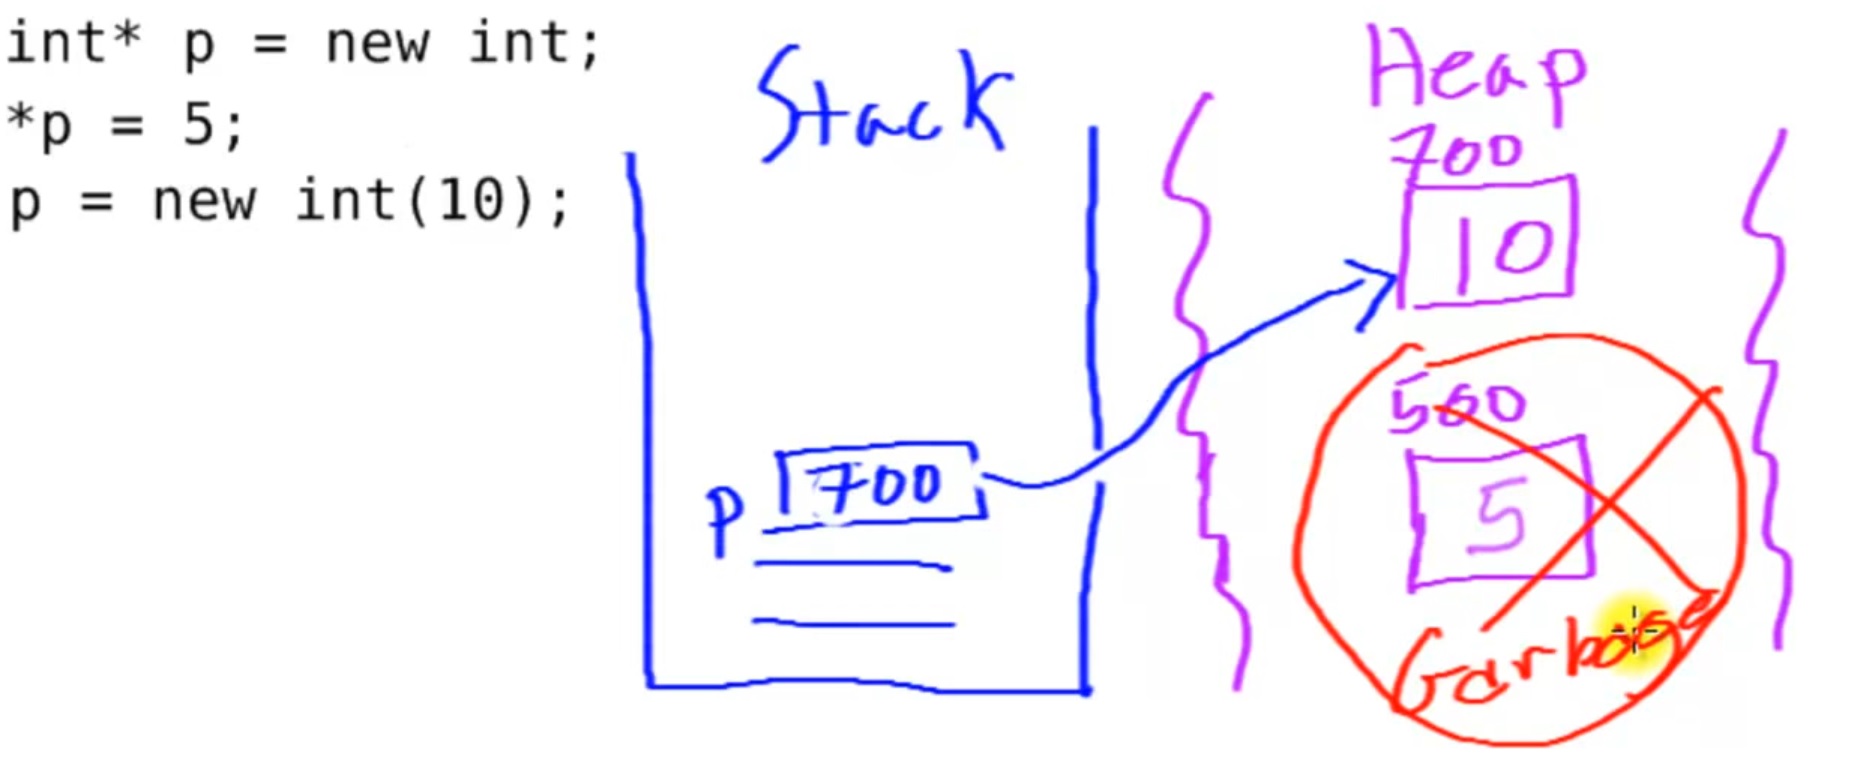 int* p = new int;
*p = 5;
p = new int(10);
Stack
p 700
Heap
700
10
500
5
Garbage